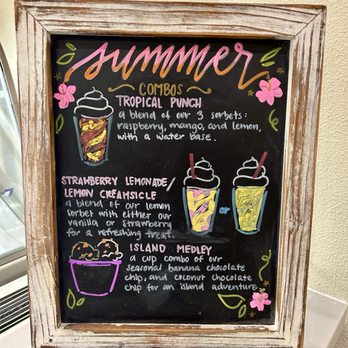 summer
COMBOS
TROPICAL PUNCH
a blend of our 3 sorbets:
raspberry, mango, and lemon,
with a water base.
STRAWBERRY LEMONADE/
LEMON CREAMSICLE
a blend of our lemon
sorbet with either our
vanilla or strawberry
for a refreshing treat.
or
ISLAND MEDLEY
a cup combo of our
seasonal banana chocolate
chip, and coconut chocolate
chip for an island adventure